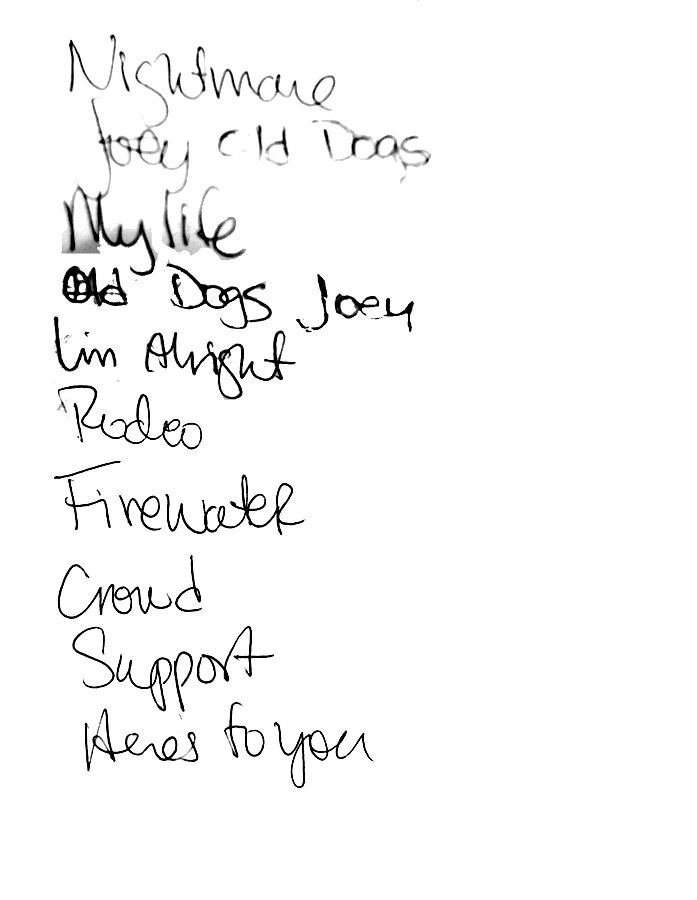 Nightmare
Joey Old Dogs
My life
Old Dogs Joey
I'm Alright
Rodeo
Firewater
Crowd
Support
Heres to you